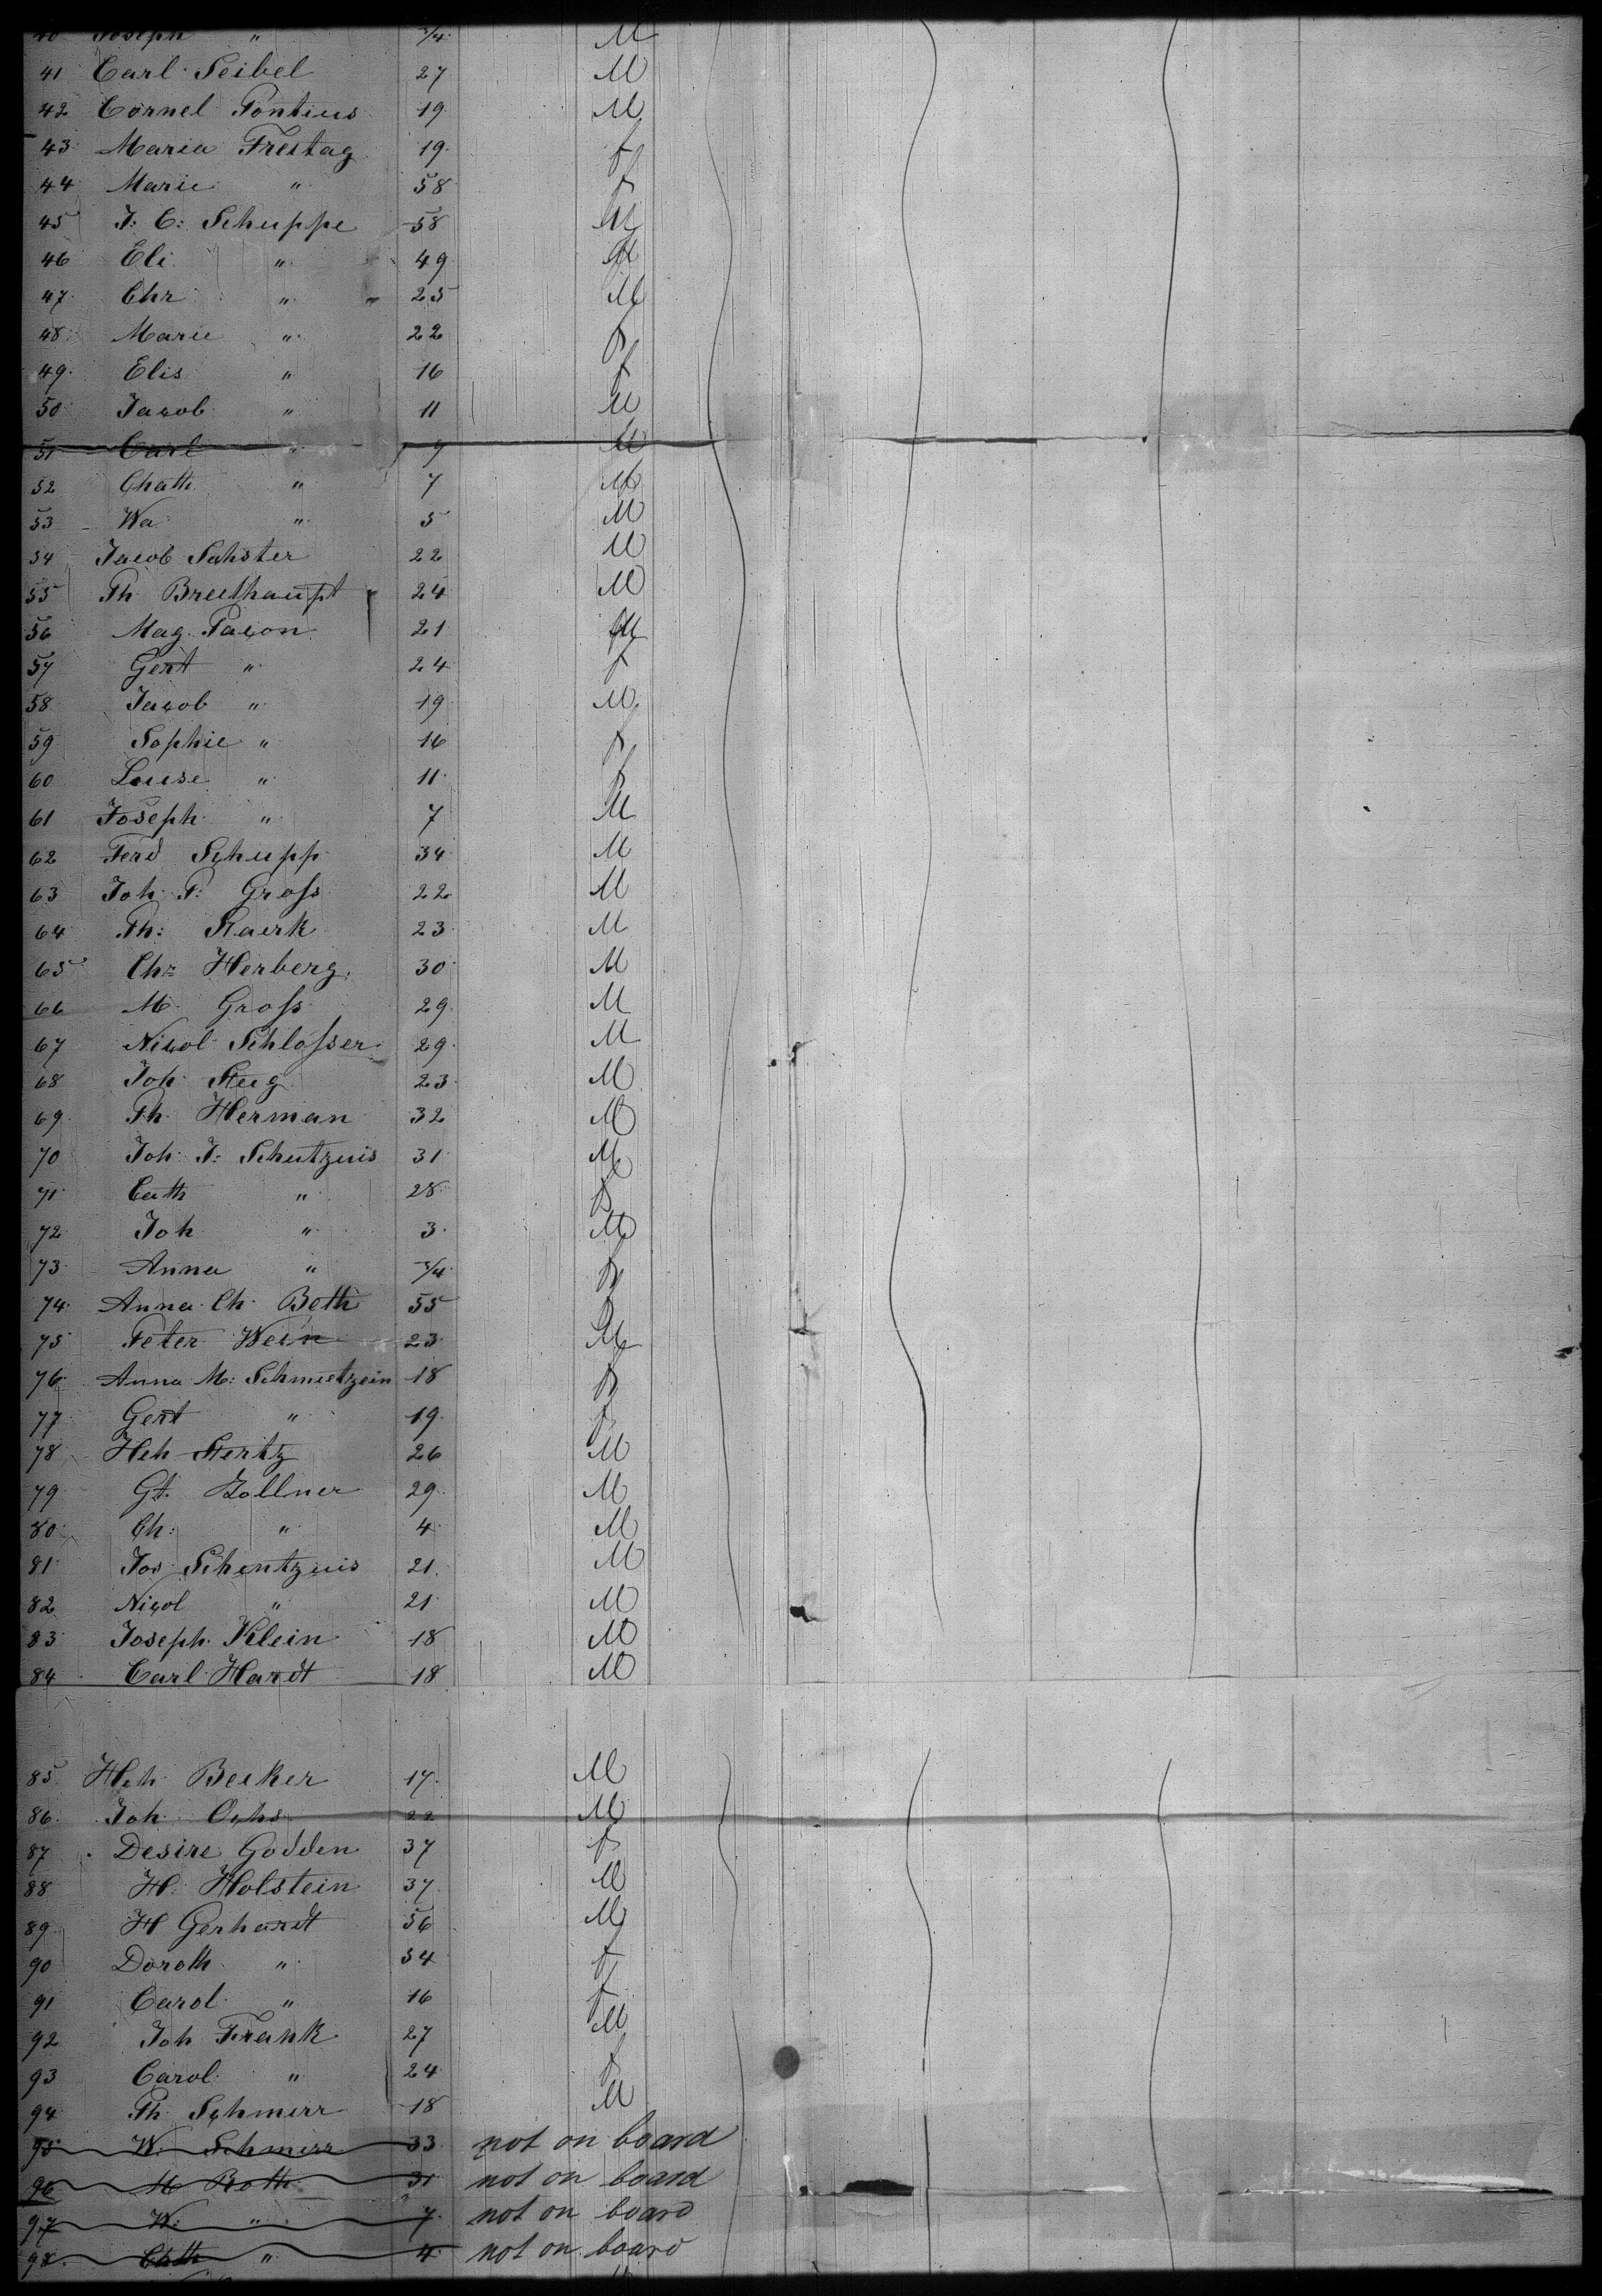 40 Joseph " 3/4 M
41 Carl Seibel 27 M
42 Cornel Pontius 19 M
43 Maria Freitag 19 f
44 Marie " 58 f
45 J: C: Schuppe 58 M
46 Eli " 49
47 Chr " 25 M
48 Marie " 22 f
49 Elis " 16 f
50 Jacob " 11 M
51 Carl " 9 M
52 Chath " 7 M
53 Wa " 5 M
54 Jacob Sahster 22 M
55 Ph Breithaupt 24 M
56 Mag. Pacon 21
57 Gert " 24 f
58 Jacob " 19 M
59 Sophie " 16 f
60 Louise " 11 f
61 Joseph " 7 M
62 Ferd Schupp 34 M
63 Joh P: Gross 22 M
64 Ph: Staerk 23 M
65 Chr Herberg 30 M
66 M. Gross 29 M
67 Nicol Schlosser 29 M
68 Joh Steig 23 M
69 Ph. Herman 32 M
70 Joh J: Schutzuis 31 M
71 Cath " 28 f
72 Joh " 3 M
73 Anna " 3/4 f
74 Anna Ch. Beth 55 f
75 Peter Wein 23 M
76 Anna M: Schmeetzein 18 f
77 Gert " 19 f
78 Heh Stertz 26 M
79 Gt. Zollner 29 M
80 Ch: " 4 M
81 Jos Schentzuis 21 M
82 Nicol " 21 M
83 Joseph Klein 18 M
84 Carl Hardt 18 M
85 Heh Becker 17 M
86 Joh Ochs 22 M
87 Desire Godden 37 f
88 H: Holstein 37 M
89 H Gerhardt 56 M
90 Doroth " 54 f
91 Carol " 16 f
92 Joh Frank 27 M
93 Carol " 24 f
94 Ph Schmirr 18 M
95 W. Schmirr 33 not on board
96 M Roth 31 not on board
97 W: " 7 not on board
98 Chth " 4 not on board